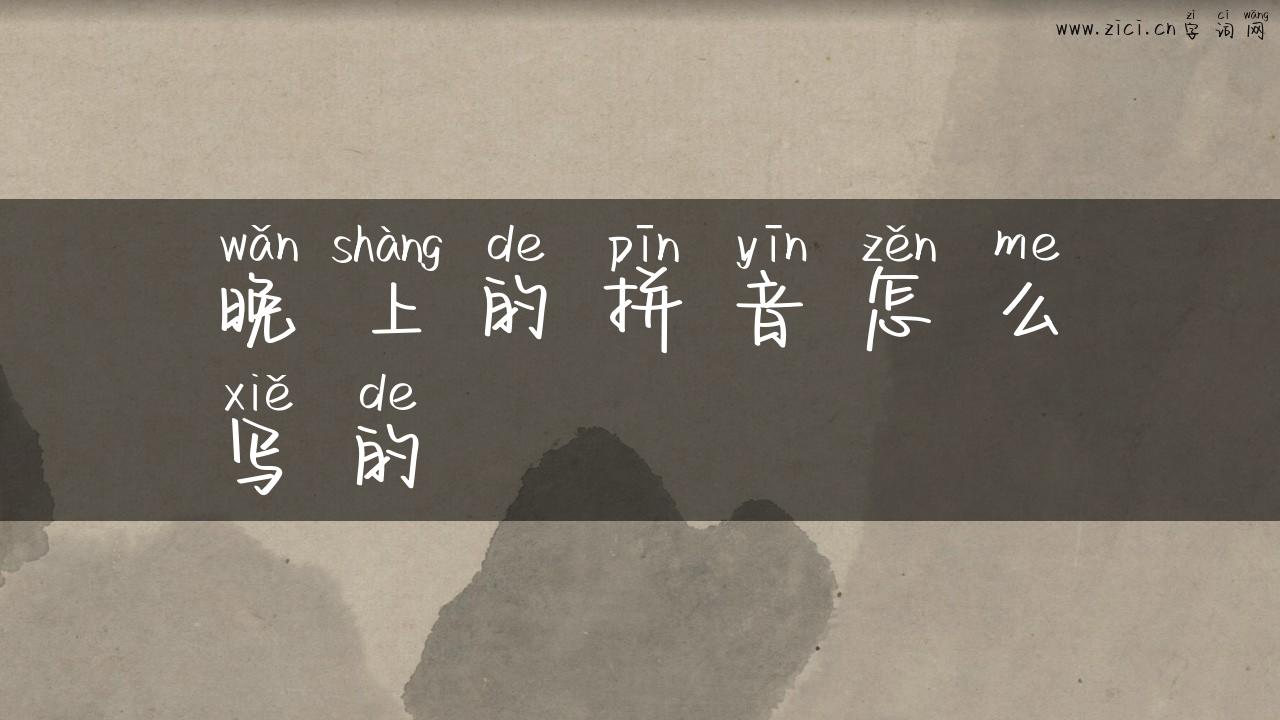 zì cí wǎng
www.zici.cn 字 词 网
wǎn shàng de pīn yīn zěn me
晚 上 的 拼 音 怎 么
xiě de
写 的